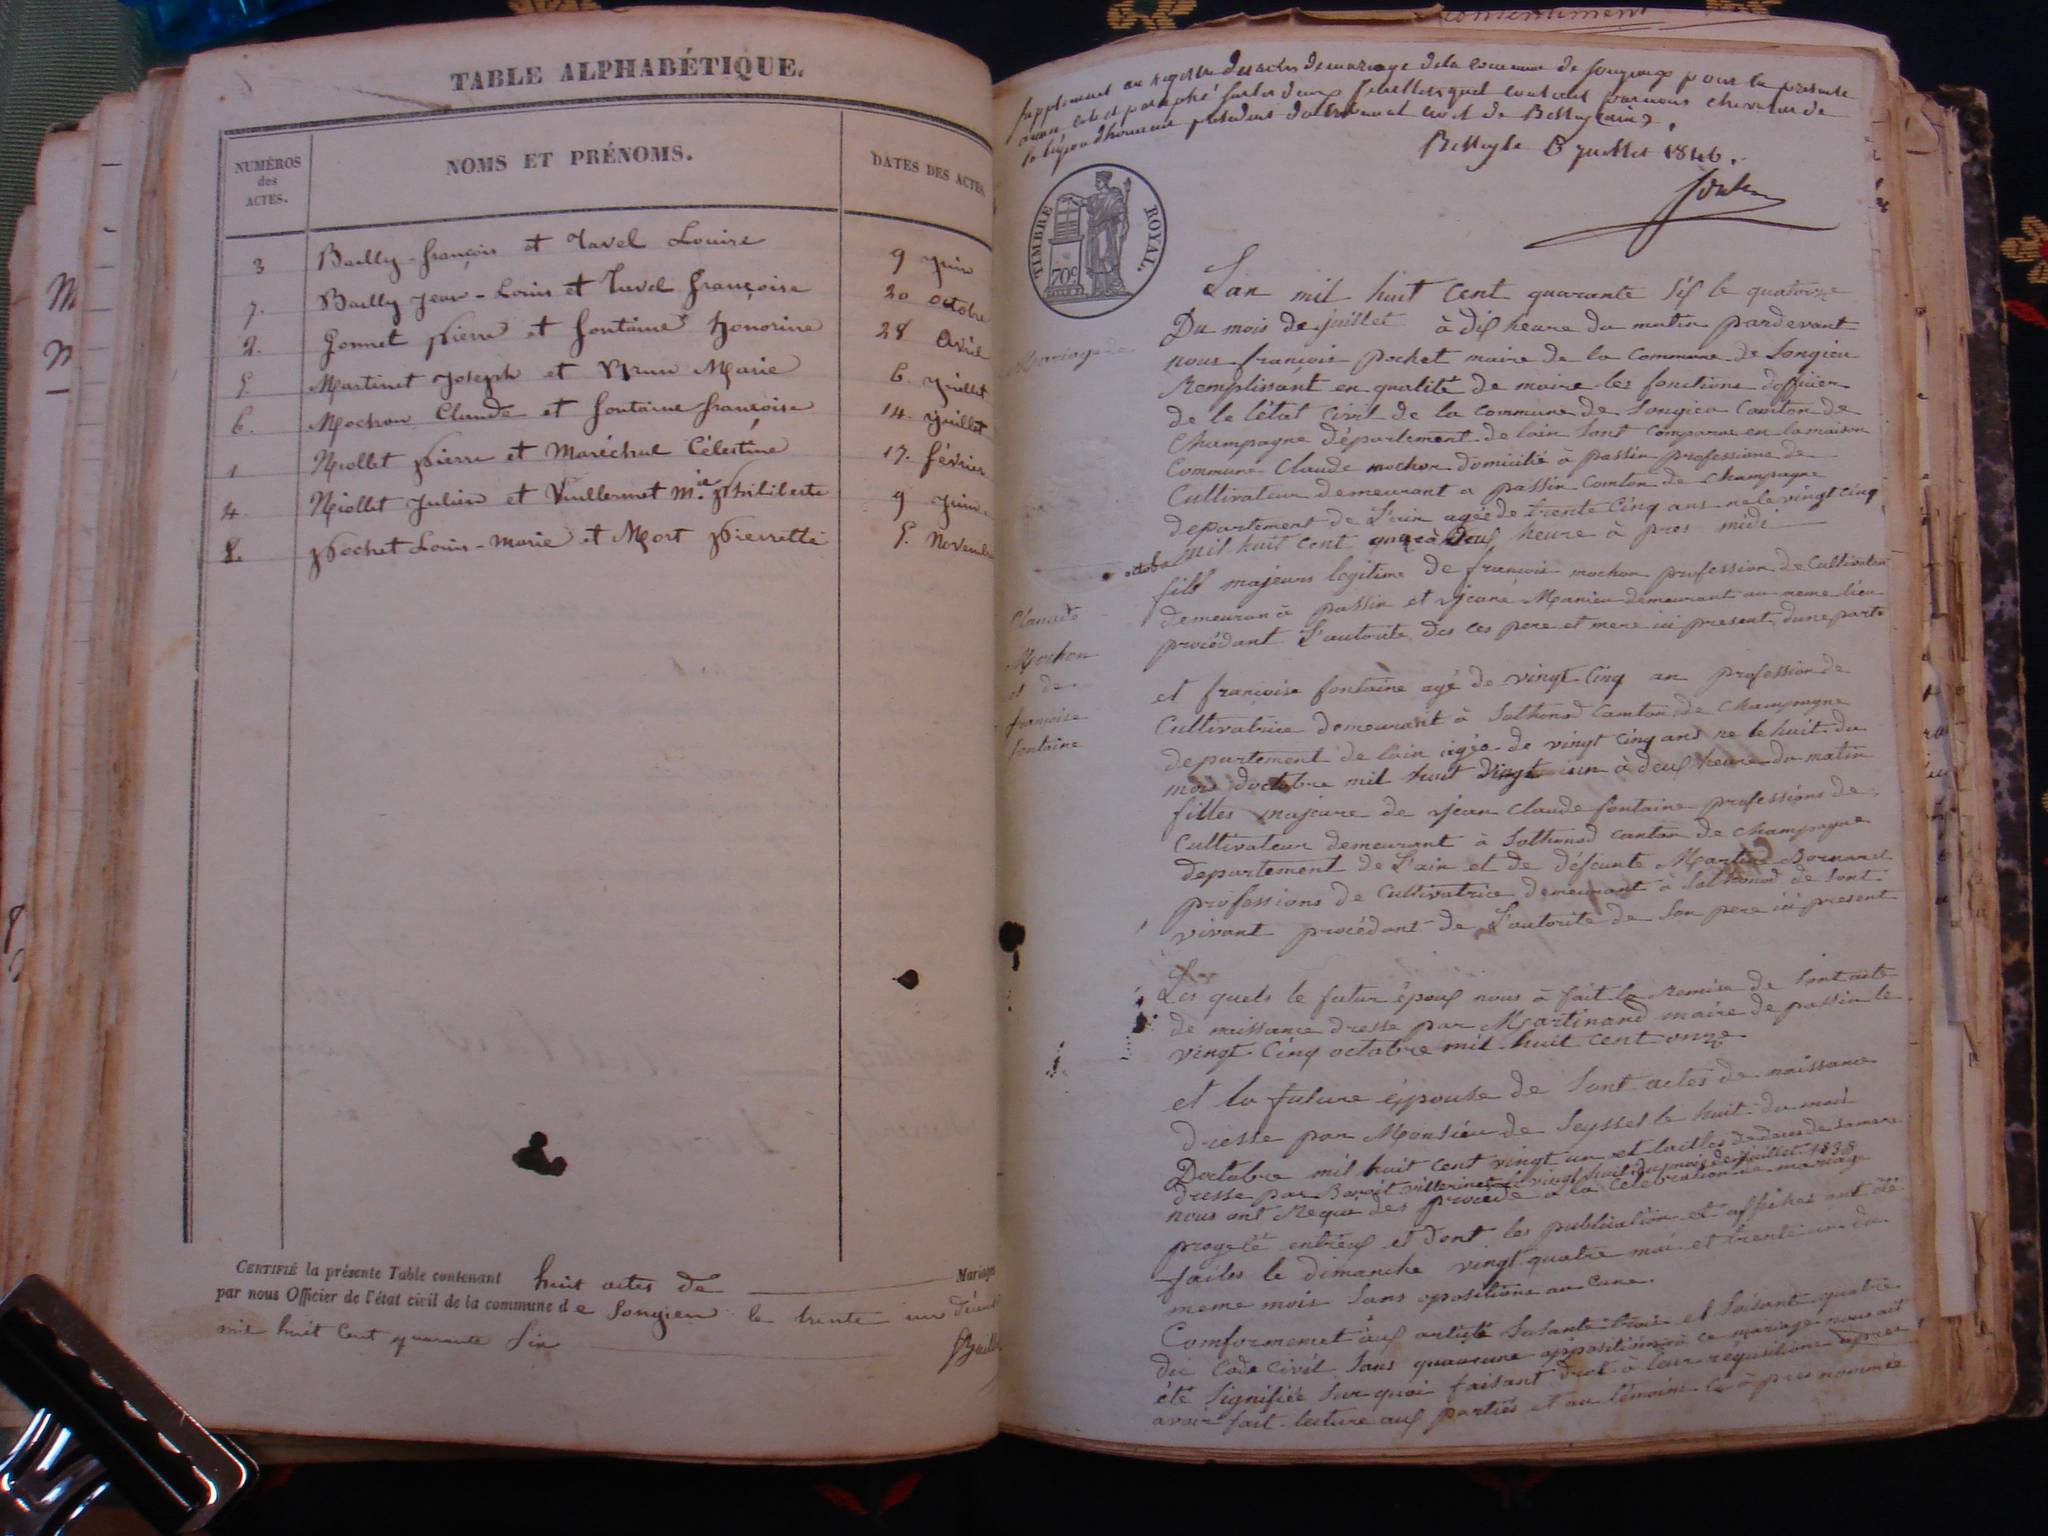 TABLE ALPHABÉTIQUE.
NUMÉROS des ACTES.
NOMS ET PRÉNOMS.
DATES DES ACTES
3 Bailly François et Tavel Louise 9 Juin
7. Bailly Jean-Louis et Tavel françoise 20 octobre
2. Gonnet Pierre et fontaine honorine 28 Avril
5. Martinet Joseph et Brun Marie 6. Juillet
6. Mochon Claude et fontaine françoise 14. Juillet
1 Niollet Pierre et Maréchal Célestine 17. février
4. Niollet Julien et Vuillermet Mie Philiberte 9 Juin
8. Pochet Louis-Marie et Mort Pierrette 5. Novemb
CERTIFIÉ la présente Table contenant huit actes de Mariages
par nous Officier de l'état civil de la commune de Songieu le trente un décemb
mil huit cent quarante Six
consentiment
Supplement au registre des actes de mariage de la commune de Songieux pour la présente
année coté et paraphé sur les deux feuilles par nous chevalier de
la légion d'honneur président du tribunal civil de Belley (ain).
Belley le 8 juillet 1846.
TIMBRE ROYAL.
70c
Lan mil huit Cent quarante Six le quatorze
Du mois de juillet à dix heure du matin pardevant
nous françois pochet maire de la commune de Songieu
Remplissant en qualité de maire les fonctions dofficier
de le létat civil de la commune de Songieu Canton de
Champagne département de lain Sont comparue en la maison
Commune Claude mochon domicilié à passin professions de
Cultivateur demeurant a passin Comton de Champagne
departement de L'ain agée de trente Cinq ans ne le vingt cinq
octobre mil huit cent onze à deux heure à pres midi
fils majeurs legitime de françois mochon profession de Cultivateur
demeuran à passin et jeane Manieu demeurant au meme lieu
procédant L'autorite des ces pere et mere ici present dune parte
Mariage de
Claude
Mochon
et de
françoise
fontaine
et françoise fontaine agé de vingt Cinq an profession de
Cultivatrice demeurant à Sothonod Camton de Champagne
departement de lain agée de vingt Cinq ans ne le huit du
mois doctobre mil huit vingt un à deux heure du matin
filles majeure de jean Claude fontaine professions de
Cultivateur demeurant à Sothonod canton de Champagne
departement de L'ain et de défeunte Martine Bornard
professions de Cultivatrice demeurant à Sothonod de Sont
vivant procédant de L'autorite de Son pere ici present
Les quels le futur époux nous à fait la Remise de Sont acte
de naissance dresse par Martinand maire de passin le
vingt Cinq octobre mil huit cent onze
et la future épouse de Sont actes de naissance
dresse par Monsieu de Seyssel le huit du moi
Doctobre mil huit cent vingt un et lactes de daces de Samere
dresse par Benoit vitterinet le vingt huit du mois de juillet 1838
nous ont Requi des procede à la Celebration de mariage
progeté entreux et dont les publication et affiches ont été
faites le dimanche vingt quatre mai et trente un du
meme mois Sans opositions aucune.
Comformemet aux article Soisante trois et Soisante quatre
du Code Civil Sans quaucune oppositions à ce mariage nous ait
été Signifiée Sur quoi faisant droit à leur requsitions apres
avoir fait lecture aux parties et au témoins ci à pres nommée